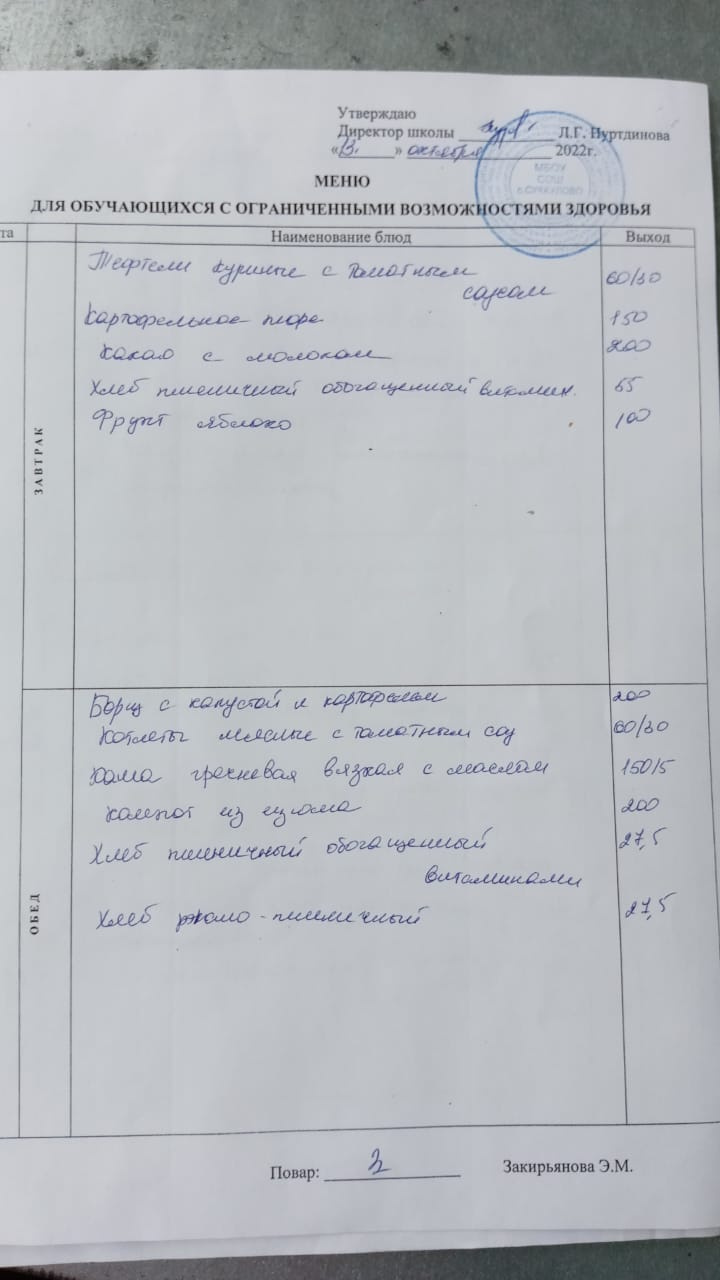 Утверждаю
Директор школы Л.Г. Нуртдинова
«13.» октября 2022г.
МБОУ
СОШ
МЕНЮ
ДЛЯ ОБУЧАЮЩИХСЯ С ОГРАНИЧЕННЫМИ ВОЗМОЖНОСТЯМИ ЗДОРОВЬЯ
та Наименование блюд Выход
ЗАВТРАК
Тефтели куриные с томатным
соусом 60/30
Картофельное пюре 150
Какао с молоком 200
Хлеб пшеничный обогащенный витамин. 55
Фрукт яблоко 100
ОБЕД
Борщ с капустой и картофелем 200
Котлеты мясные с томатным соу 60/30
Каша гречневая вязкая с маслом 150/5
Компот из изюма 200
Хлеб пшеничный обогащенный 27,5
витаминами
Хлеб ржано-пшеничный 27,5
Повар: Закирьянова Э.М.